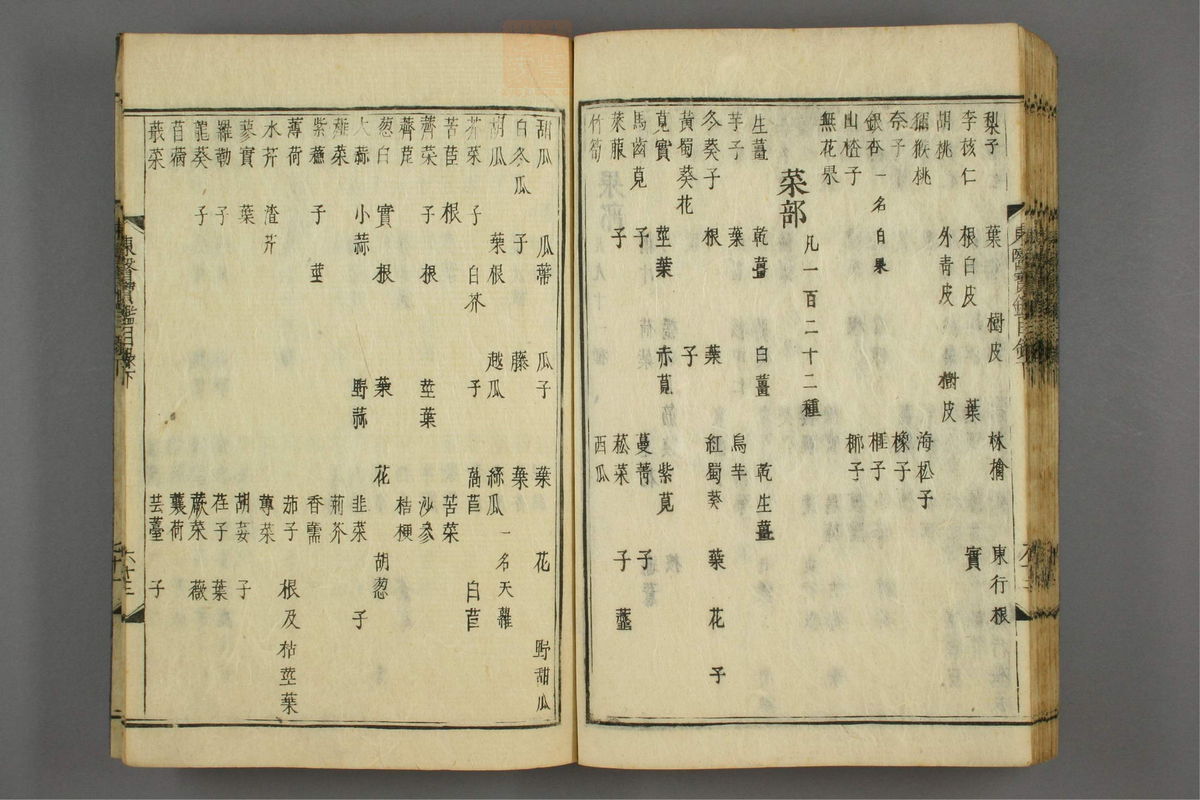 梨子 葉 樹皮 林檎 東行根
李核仁 根白皮 葉 實
胡桃 外青皮 樹皮
獼猴桃 海松子
柰子 橡子
銀杏一名白果 榧子
山樝子 椰子
無花果
菜部 凡一百二十二種
生薑 乾薑 白薑 乾生薑
芋子 葉 烏芋
冬葵子 根 葉 紅蜀葵 葉 花 子
黃蜀葵花 子
莧實 莖葉 赤莧 紫莧
馬齒莧 子 蔓菁 子
萊菔 子 菘菜 子 虀
竹筍 西瓜
甜瓜 瓜蔕 瓜子 葉 花 野甜瓜
白冬瓜 子 藤 葉
胡瓜 葉根 越瓜 絲瓜一名天羅
芥菜 子 白芥 子 萵苣 白苣
苦苣 根 苦菜
薺菜 子 根 莖葉 沙參
薺苨 桔梗
葱白 實 根 葉 花 胡葱
大蒜 小蒜 野蒜 韭菜 子
薤菜 荊芥
紫蘇 子 莖 香薷
薄荷 茄子 根及枯莖葉
水芹 渣芹 蓴菜
蓼實 葉 胡荽 子
羅勒 子 荏子 葉
龍葵 子 蕨菜 薇
苜蓿 蘘荷
蕺菜 芸薹 子
東醫寶鑑目錄下
六十三